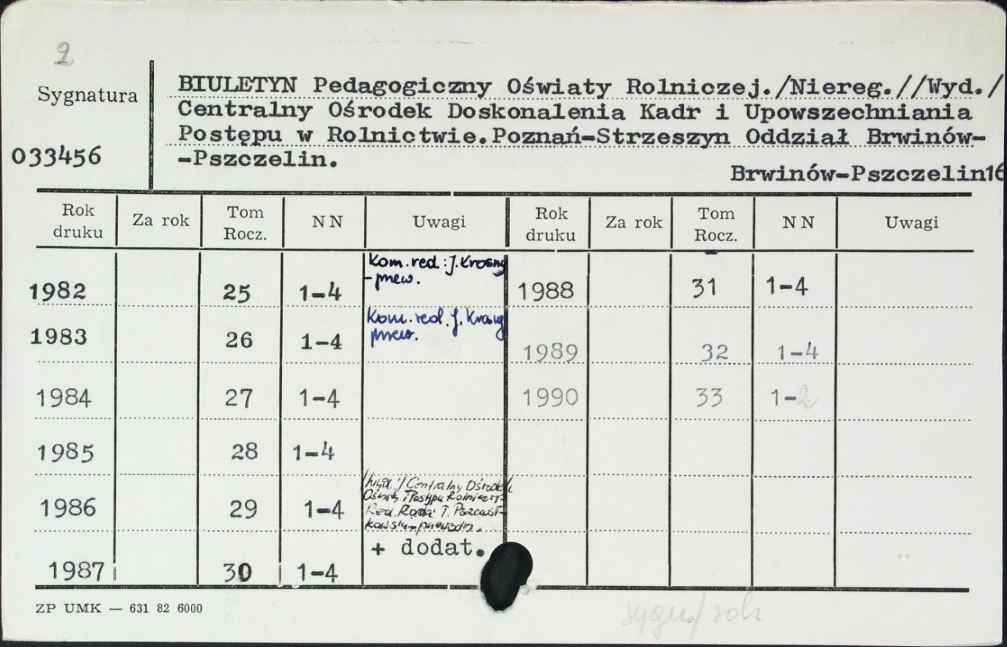 2
Sygnatura
033456
BIULETYN Pedagogiczny Oświaty Rolniczej./Niereg.//Wyd./
Centralny Ośrodek Doskonalenia Kadr i Upowszechniania
Postępu w Rolnictwie.Poznań-Strzeszyn Oddział Brwinów-
-Pszczelin.
Brwinów-Pszczelin16
Rok druku Za rok Tom Rocz. NN Uwagi Rok druku Za rok Tom Rocz. NN Uwagi
1982 25 1-4 Kom. red.: J. Krosny 1988 31 1-4
1983 26 1-4 Kom. red. J. 1989 32 1-4
1984 27 1-4 1990 33 1-2
1985 28 1-4
1986 29 1-4 Centralny Ośrodek
+ dodat.
1987 30 1-4
ZP UMK — 631 82 6000